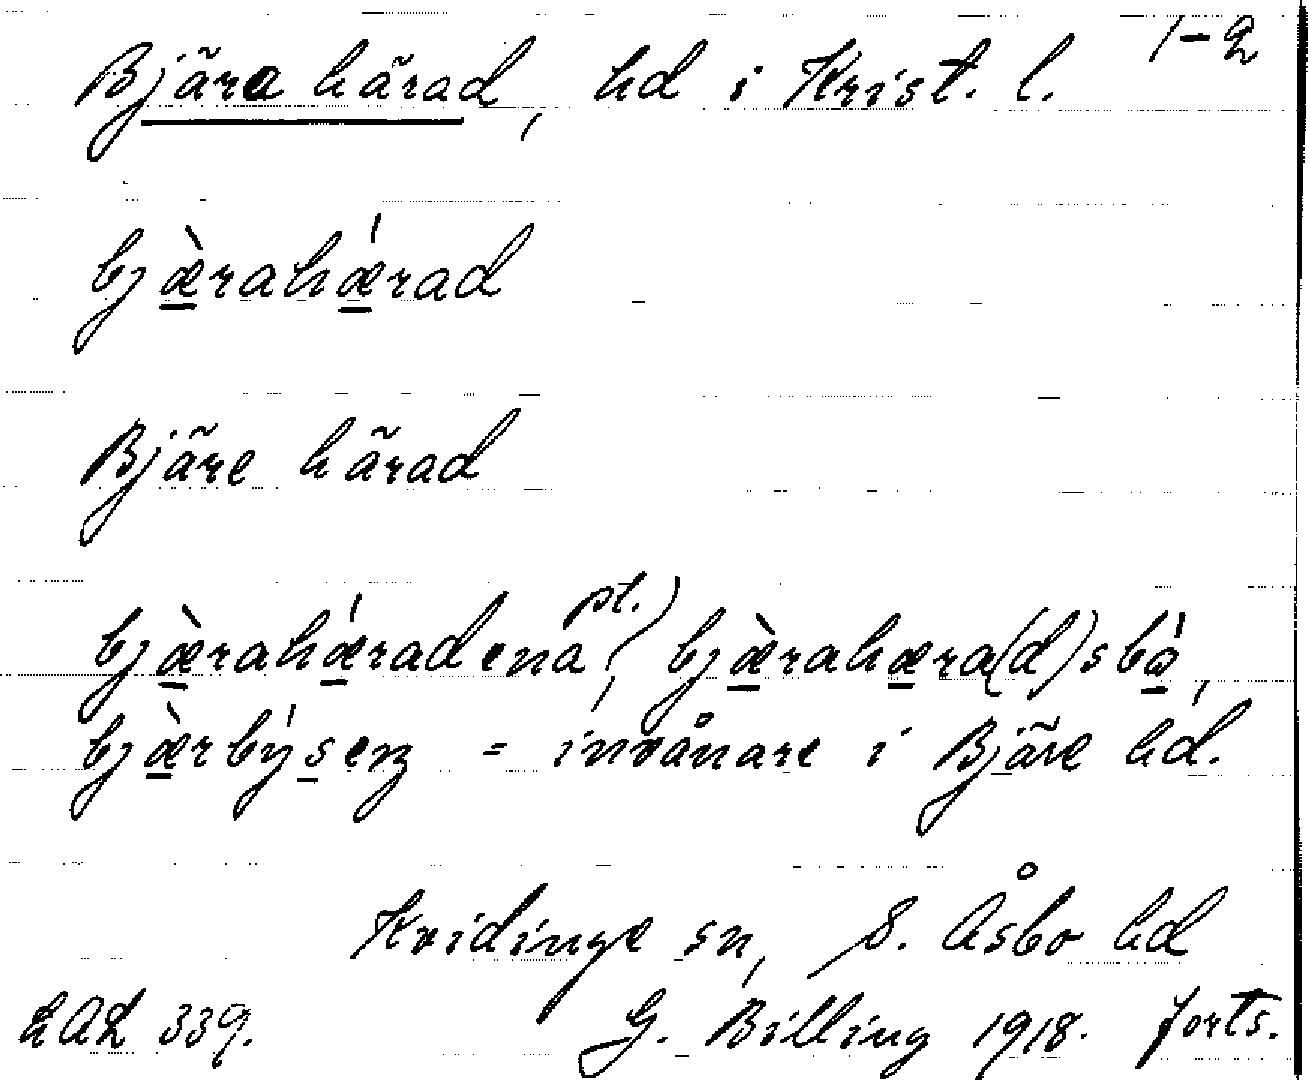 1-2
Bjära härad, hd i Krist. l.
bjæ̀rahǽrad
Bjäre härad
bjæ̀rahǽradena (pl.), bjæ̀rahæra(d)sbó,
bjæ̀rbýsen = invånare i Bjäre hd.
Kvidinge sn, S. Åsbo hd
LAL 339. G. Billing 1918. forts.